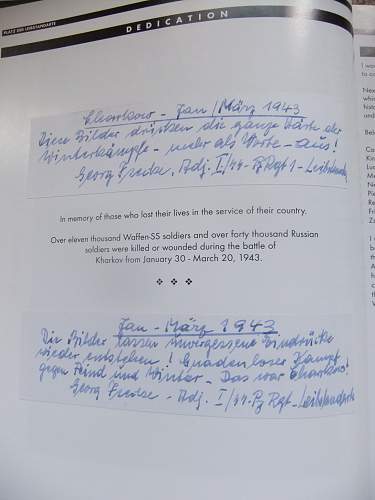 PLATZ DER LEIBSTANDARTE
DEDICATION
Charkow - Jan/März 1943
Diese Bilder drücken die ganze Härte der
Winterkämpfe - mehr als Worte - aus!
Georg Adj. I/SS-Pz Rgt 1 - Leibstandarte
In memory of those who lost their lives in the service of their country.
Over eleven thousand Waffen-SS soldiers and over forty thousand Russian
soldiers were killed or wounded during the battle of
Kharkov from January 30 - March 20, 1943.
Jan - März 1943
Die Bilder lassen unvergessene Eindrücke
wieder entstehen! Gnadenloser Kampf
gegen Feind und Winter - Das war Charkow!
Georg - Adj. I/SS-Pz Rgt - Leibstandarte